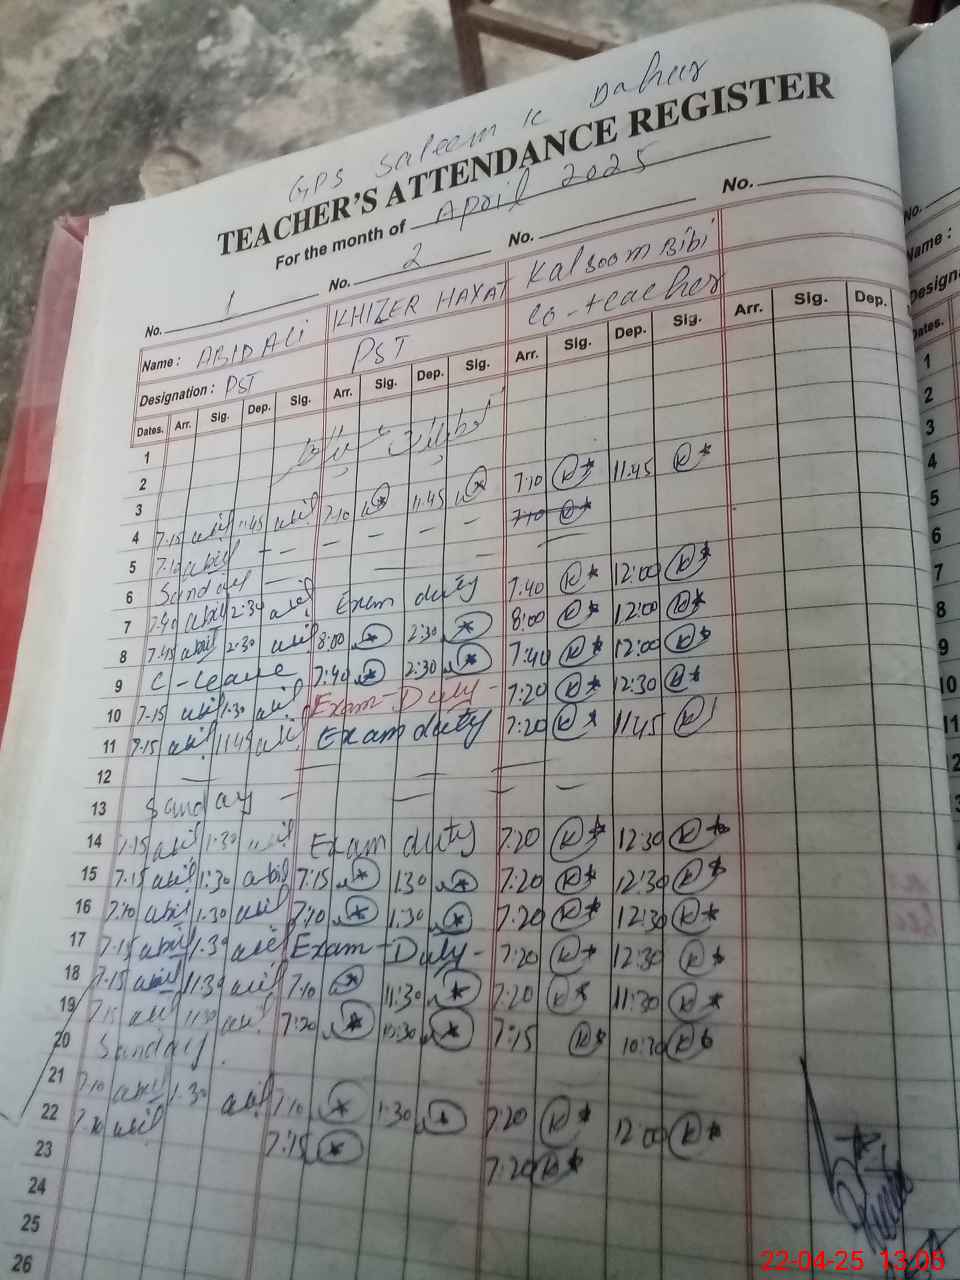 GPS Saleem K Daher
TEACHER'S ATTENDANCE REGISTER
For the month of April 2025
No. 1 No. 2 No. No.
Name : ABID ALI KHIZER HAYAT Kalsoom Bibi
Designation : PST PST Co-teacher
Dates. Arr. Sig. Dep. Sig. Arr. Sig. Dep. Sig. Arr. Sig. Dep. Sig. Arr. Sig. Dep.
1
2
3
4 7-15 abid 11:45 abid 7:10 11:45 7:10 K 11:45 K
5 7:10 abid — — — — — — 7:10 K
6 Sunday
7 7:40 abid 2:30 abid Exam duty 7:40 K 12:00 K
8 7:45 abid 2:30 abid 8:00 2:30 8:00 K 12:00 K
9 C-leave 7:40 2:30 7:40 K 12:00 K
10 7-15 abid 1:30 abid Exam-Duty- 7:20 K 12:30 K
11 7-15 abid 11:45 abid Exam duty 7:20 K 11:45 K
12 — — — —
13 Sunday — — — —
14 7.15 abid 1:30 abid Exam duty 7:20 K 12:30 K
15 7-15 abid 1:30 abid 7:15 1:30 7:20 K 12:30 K
16 7:10 abid 1:30 abid 7:10 1:30 7:20 K 12:30 K
17 7-15 abid 1:30 abid Exam-Duty- 7:20 K 12:30 K
18 7-15 abid 11:30 abid 7:10 11:30 7:20 K 11:30 K
19 7:15 abid 11:30 abid 7:20 10:30 7:15 K 10:30 K
20 Sunday
21 7:10 abid 1:30 abid 7:10 1:30 7:20 K 12:00 K
22 7:10 abid 7:15 7:20 K
23
24
25
26
No.
Name :
Dates.
1
2
3
4
5
6
7
8
9
10
11
22-04-25 13:05